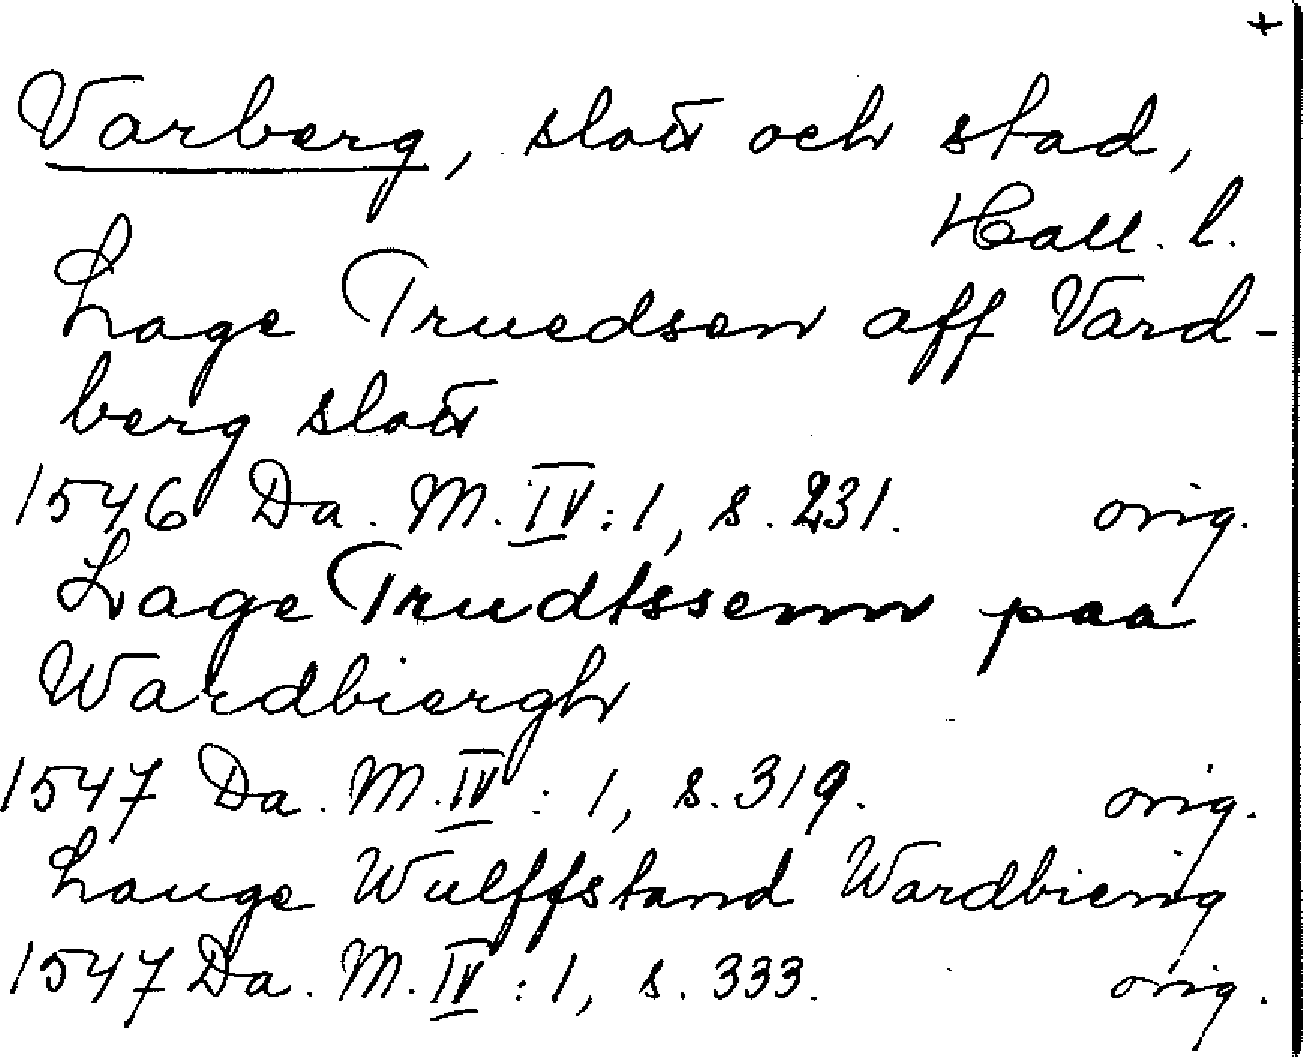 +
Varberg, slott och stad,
Hall. l.
Lage Truedsen aff Vard-
berg slott
1546 Da. M. IV: 1, s. 231. orig.
Lage Trudtssenn paa
Wardbiergh
1547 Da. M. IV: 1, s. 319. orig.
Lauge Wulffstand Wardbierig
1547 Da. M. IV: 1, s. 333. orig.